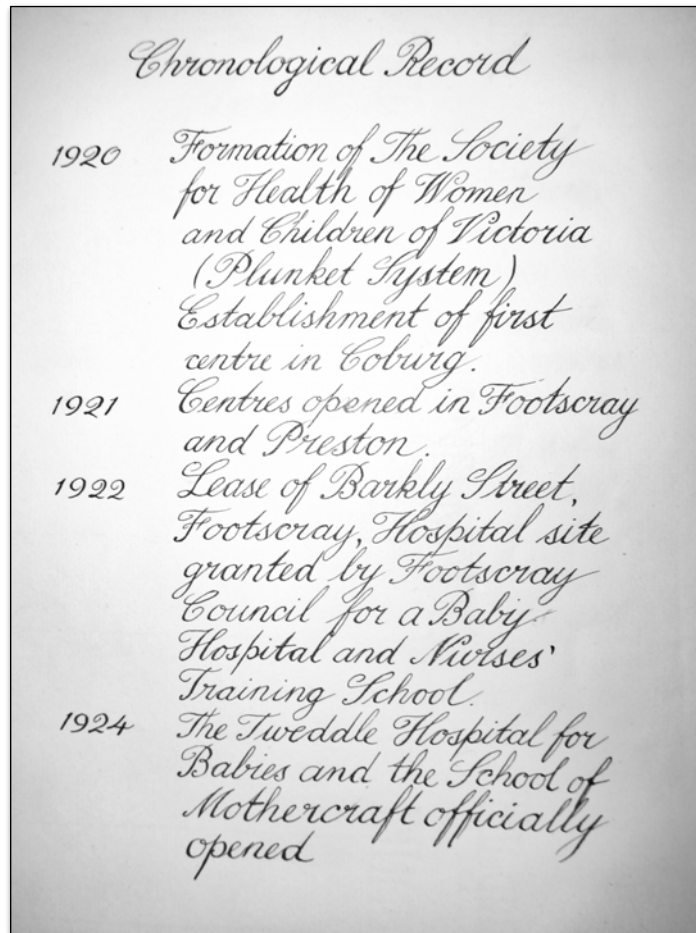 Chronological Record
1920 Formation of The Society
for Health of Women
and Children of Victoria
(Plunket System)
Establishment of first
centre in Coburg.
1921 Centres opened in Footscray
and Preston.
1922 Lease of Barkly Street,
Footscray, Hospital site
granted by Footscray
Council for a Baby
Hospital and Nurses'
Training School.
1924 The Tweddle Hospital for
Babies and the School of
Mothercraft officially
opened